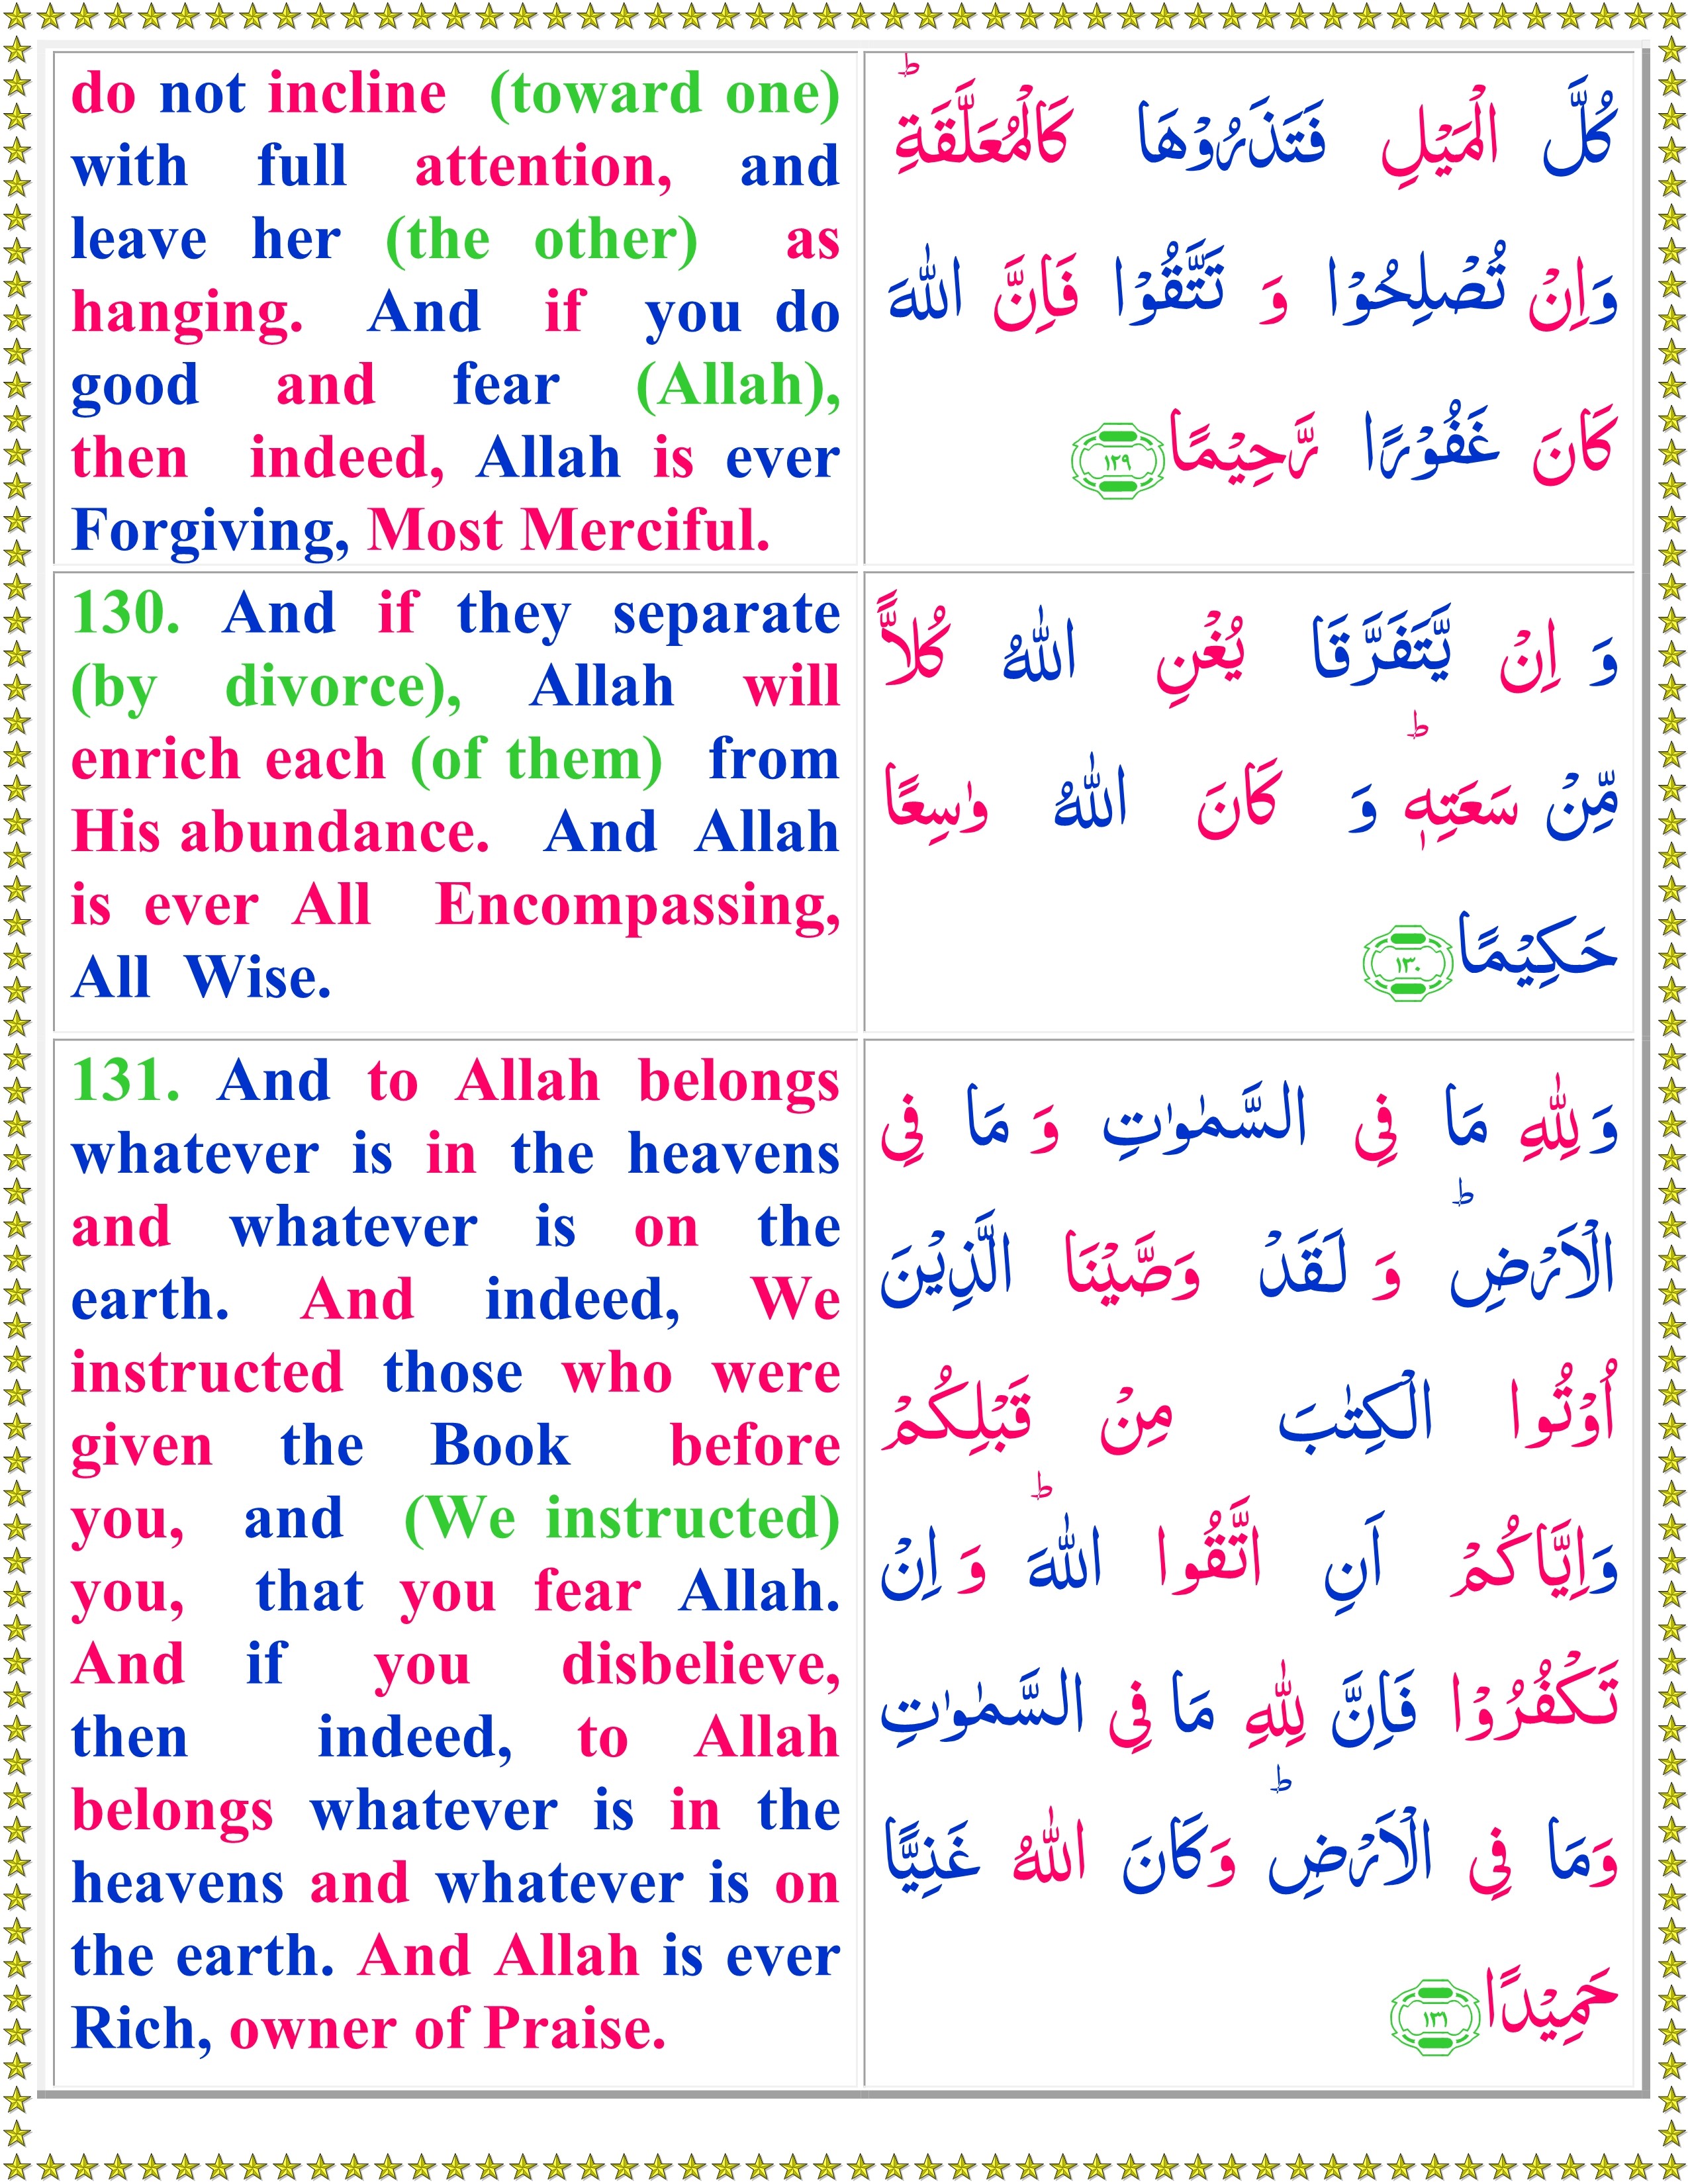 do not incline (toward one)
with full attention, and
leave her (the other) as
hanging. And if you do
good and fear (Allah),
then indeed, Allah is ever
Forgiving, Most Merciful.
كُلَّ الْمَيْلِ فَتَذَرُوْهَا كَالْمُعَلَّقَةِ ؕ
وَاِنْ تُصْلِحُوْا وَ تَتَّقُوْا فَاِنَّ اللّٰهَ
كَانَ غَفُوْرًا رَّحِيْمًا ۱۲۹
130. And if they separate
(by divorce), Allah will
enrich each (of them) from
His abundance. And Allah
is ever All Encompassing,
All Wise.
وَ اِنْ يَّتَفَرَّقَا يُغْنِ اللّٰهُ كُلاًّ
مِّنْ سَعَتِهٖ ؕ وَ كَانَ اللّٰهُ وٰسِعًا
حَكِيْمًا ۱۳۰
131. And to Allah belongs
whatever is in the heavens
and whatever is on the
earth. And indeed, We
instructed those who were
given the Book before
you, and (We instructed)
you, that you fear Allah.
And if you disbelieve,
then indeed, to Allah
belongs whatever is in the
heavens and whatever is on
the earth. And Allah is ever
Rich, owner of Praise.
وَلِلّٰهِ مَا فِى السَّمٰوٰتِ وَ مَا فِى
الْاَرْضِ ؕ وَ لَقَدْ وَصَّيْنَا الَّذِيْنَ
اُوْتُوا الْكِتٰبَ مِنْ قَبْلِكُمْ
وَاِيَّاكُمْ اَنِ اتَّقُوا اللّٰهَ ؕ وَ اِنْ
تَكْفُرُوْا فَاِنَّ لِلّٰهِ مَا فِى السَّمٰوٰتِ
وَمَا فِى الْاَرْضِ ؕ وَكَانَ اللّٰهُ غَنِيًّا
حَمِيْدًا ۱۳۱